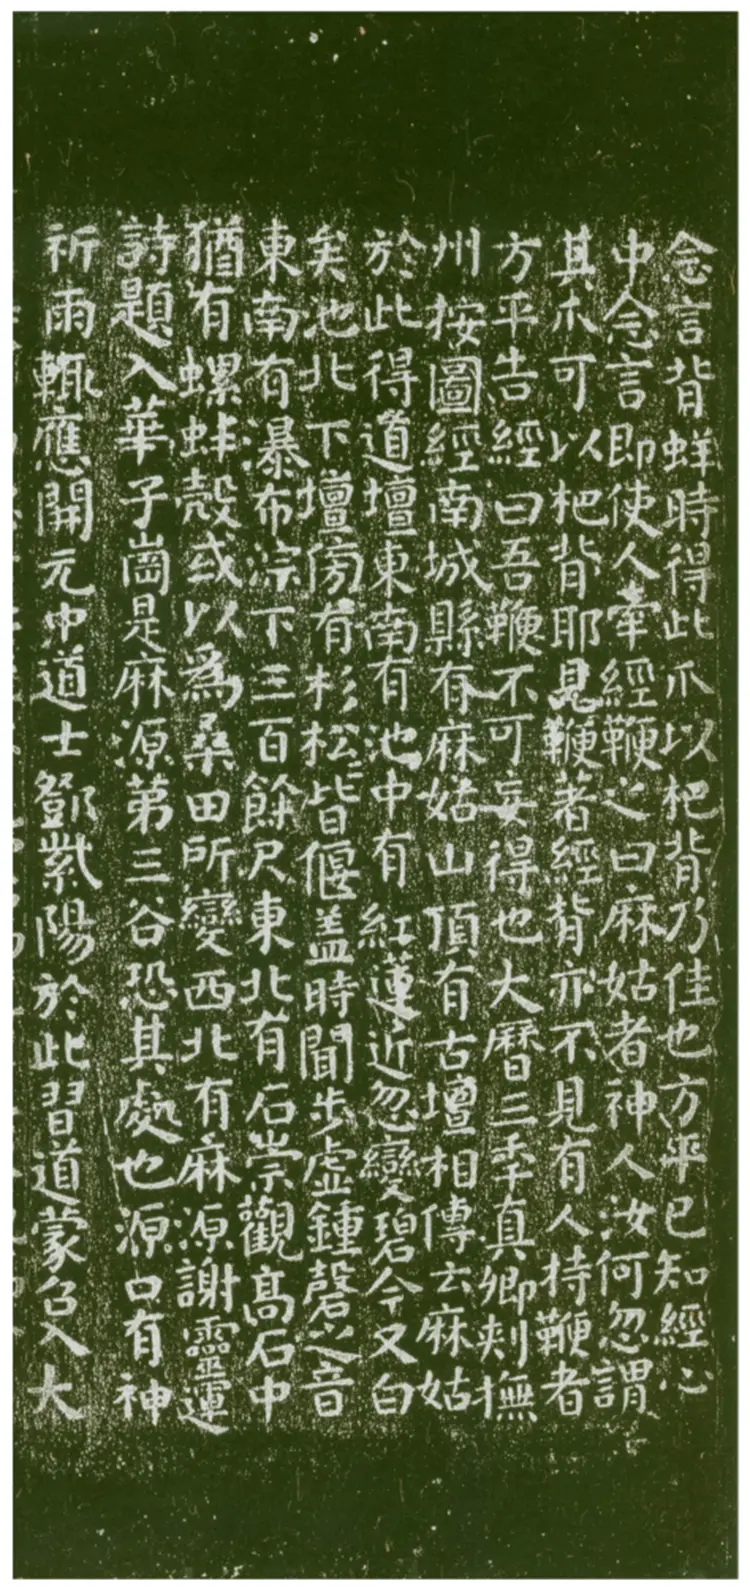 念言背蛘時得此爪以杷背乃佳也方平已知經心
中念言即使人牽經鞭之曰麻姑者神人汝何忽謂
其爪可以杷背耶見鞭著經背亦不見有人持鞭者
方平告經曰吾鞭不可妄得也大曆三年真卿刺撫
州按圖經南城縣有麻姑山頂有古壇相傳云麻姑
於此得道壇東南有池中有紅蓮近忽變碧今又白
矣池北下壇傍有杉松松皆偃蓋時聞步虛鍾磬之音
東南有瀑布淙下三百餘尺東北有石崇觀高石中
猶有螺蚌殼或以為桑田所變西北有麻源謝靈運
詩題入華子崗是麻源第三谷恐其處也源口有神
祈雨輒應開元中道士鄧紫陽於此習道蒙召入大